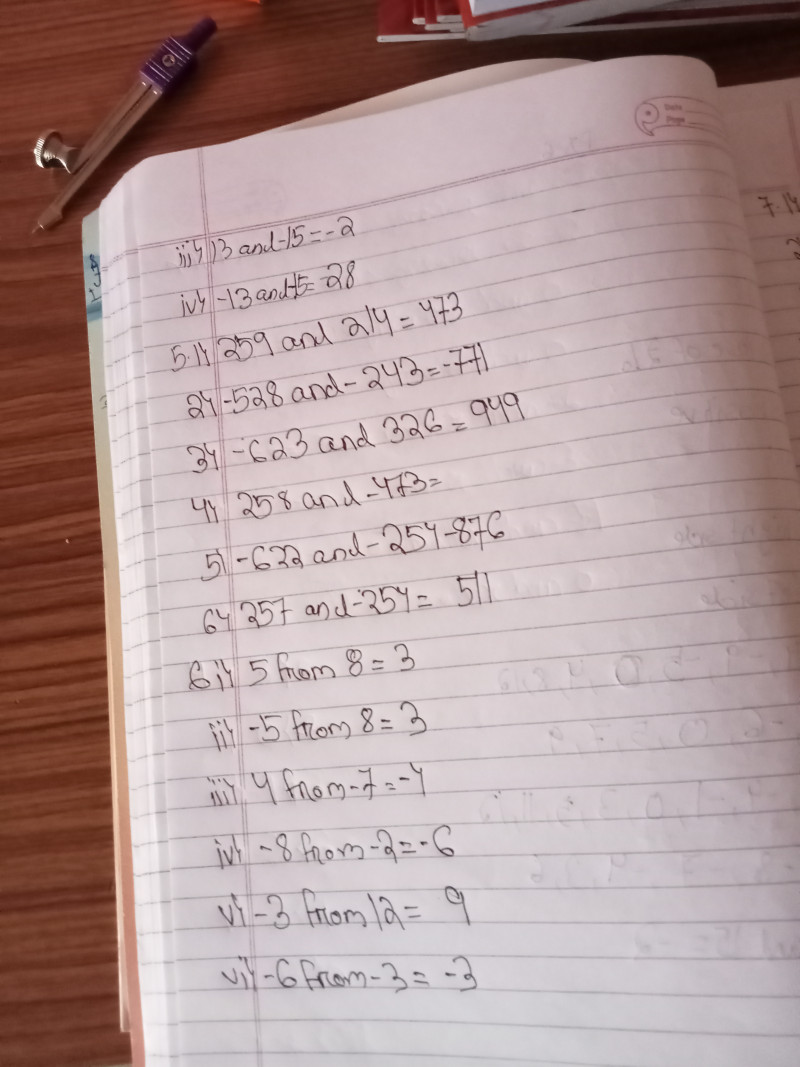 Date
Page
7.
iii) 13 and -15 = -2
iv) -13 and -15 = -28
5.1) 259 and 214 = 473
2) -528 and - 243 = -771
3) -623 and 326 = 949
4) 258 and -473 =
5) -622 and - 254 - 876
6) 257 and -254 = 511
6 i) 5 from 8 = 3
ii) -5 from 8 = 3
iii) 4 from -7 = -4
iv) -8 from -2 = -6
v) -3 from 12 = 9
vi) -6 from - 3 = -3